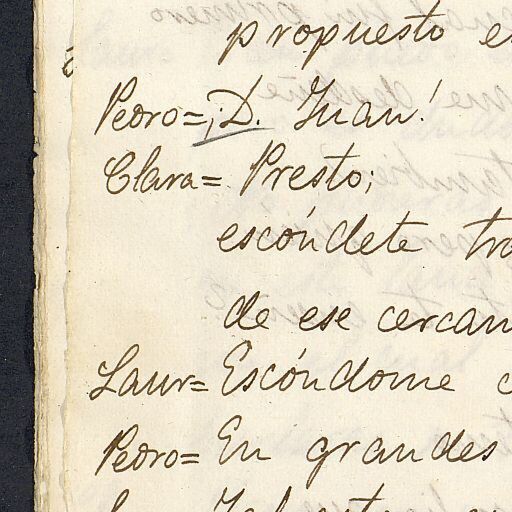 propuesto
Pedro=¡D. Juan!
Clara= Presto;
escóndete
de ese
Laur= Escóndome
Pedro= En grandes